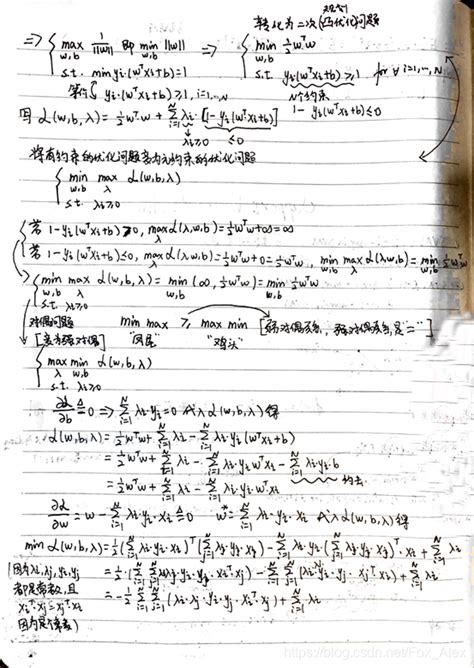 转化为二次(凸优化)问题
=> { max_{w,b} 1/||w|| 即 min_{w,b} ||w|| => { min_{w,b} ½wᵀw
s.t. min yᵢ(wᵀxᵢ+b)=1 s.t. yᵢ(wᵀxᵢ+b)≥1, for ∀ i=1,…,N
yᵢ·(wᵀxᵢ+b)≥1, i=1,…,N N个约束
1-yᵢ(wᵀxᵢ+b)≤0
L(w,b,λ)=½wᵀw+∑_{i=1}^N λᵢ·[1-yᵢ(wᵀxᵢ+b)]
λᵢ≥0 ≤0
将有约束的优化问题变为无约束的优化问题
{ min_{w,b} max_λ L(w,b,λ)
s.t. λᵢ≥0
若 1-yᵢ(wᵀxᵢ+b)>0, max_λ L(λ,w,b)=½wᵀw+∞=∞
若 1-yᵢ(wᵀxᵢ+b)≤0, max_λ L(λ,w,b)=½wᵀw+0=½wᵀw, min_{w,b} max_λ L(λ,w,b)=min_{w,b} ½wᵀw
{ min_{w,b} max_λ L(w,b,λ)=min_{w,b}(∞,½wᵀw)=min_{w,b} ½wᵀw
s.t. λᵢ≥0
对偶问题 min max ≥ max min [弱对偶关系, 强对偶关系是"="]
[强对偶] "凤尾" "鸡头"
{ max_λ min_{w,b} L(w,b,λ)
s.t. λᵢ≥0
∂L/∂b ≜ 0 => ∑_{i=1}^N λᵢ·yᵢ=0 代入 L(w,b,λ)得
L(w,b,λ)=½wᵀw+∑_{i=1}^N λᵢ-∑_{i=1}^N λᵢ·yᵢ(wᵀxᵢ+b)
=½wᵀw+∑_{i=1}^N λᵢ-∑_{i=1}^N λᵢ·yᵢwᵀxᵢ-∑_{i=1}^N λᵢ·yᵢ·b
=½wᵀw+∑_{i=1}^N λᵢ-∑_{i=1}^N λᵢ·yᵢ·wᵀxᵢ 约去
∂L/∂w=w-∑_{i=1}^N λᵢ·yᵢ·xᵢ≜0 w*=∑_{i=1}^N λᵢ·yᵢ·xᵢ 代入 L(w,b,λ)得
min L(w,b,λ)=½(∑_{i=1}^N λᵢ·yᵢ·xᵢ)ᵀ(∑_{j=1}^N λⱼ·yⱼ·xⱼ)-∑_{i=1}^N λᵢ·yᵢ(∑_{j=1}^N λⱼyⱼxⱼ)ᵀ·xᵢ+∑_{i=1}^N λᵢ
(因为λᵢ,λⱼ,yᵢ,yⱼ =½(∑_{i=1}^N∑_{j=1}^N λᵢλⱼ·yᵢ·yⱼ·xᵢᵀ·xⱼ)-∑_{i=1}^N∑_{j=1}^N(λᵢλⱼyᵢ·yⱼ·xⱼᵀxᵢ)+∑_{i=1}^N λᵢ
都是常数,且 =-½∑_{i=1}^N∑_{j=1}^N(λᵢ·λⱼ·yᵢ·yⱼ·xᵢᵀ·xⱼ)+∑_{i=1}^N λᵢ
xᵢᵀxⱼ=xⱼᵀxᵢ
因为是常数)
https://blog.csdn.net/Fox_Alex